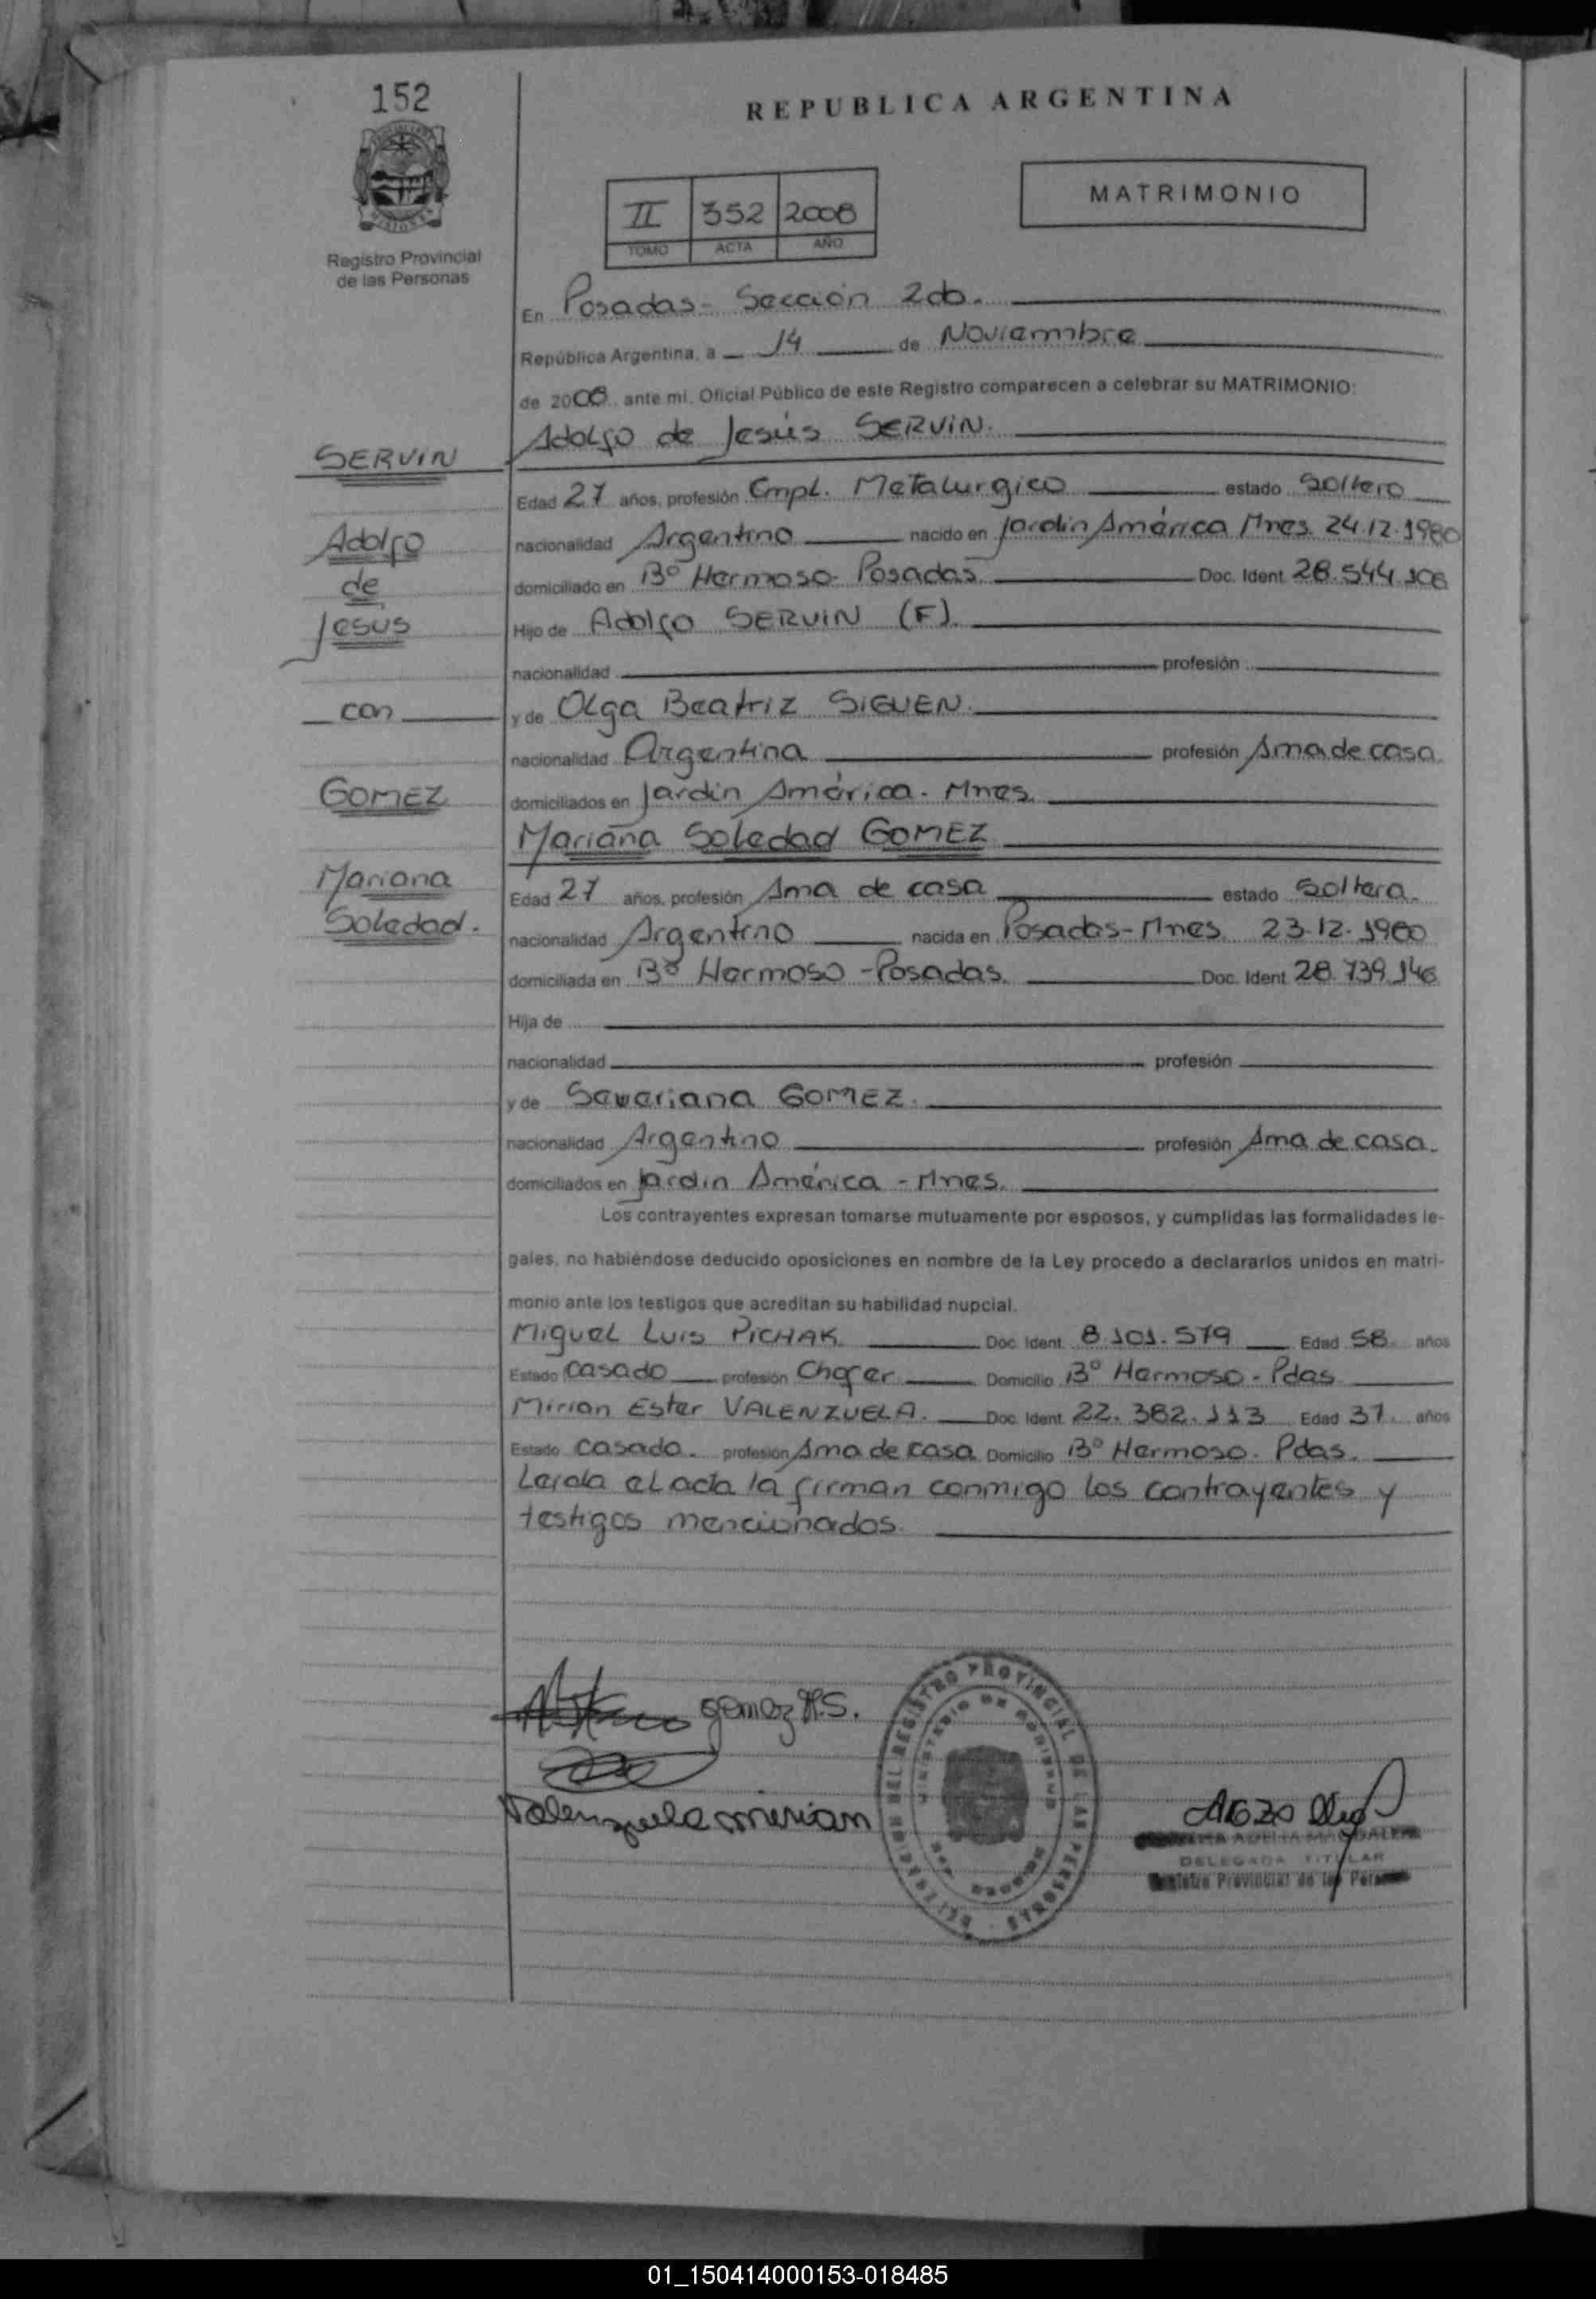 152
REPUBLICA ARGENTINA
MATRIMONIO
II 352 2008
TOMO ACTA AÑO
Registro Provincial
de las Personas
En Posadas - Sección 2da.
República Argentina, a 14 de Noviembre
de 2008 ante mi, Oficial Público de este Registro comparecen a celebrar su MATRIMONIO:
Adolfo de Jesús SERVIN.
SERVIN
Edad 27 años, profesión Empl. Metalurgico estado Soltero
Adolfo
nacionalidad Argentino nacido en Jardín América Mnes. 24.12.1980
de
domiciliado en B° Hermoso - Posadas. Doc. Ident. 28.544.108
Jesus
Hijo de Adolfo SERVIN (F).
nacionalidad profesión
con
y de Olga Beatriz SIGUEN.
nacionalidad Argentina profesión Ama de casa.
GOMEZ
domiciliados en Jardín América - Mnes.
Mariana Soledad GOMEZ
Mariana
Edad 27 años, profesión Ama de casa estado Soltera.
Soledad.
nacionalidad Argentina nacida en Posadas - Mnes. 23.12.1980
domiciliada en B° Hermoso - Posadas. Doc. Ident. 28.739.146
Hija de
nacionalidad profesión
y de Severiana GOMEZ.
nacionalidad Argentina profesión Ama de casa.
domiciliados en Jardín América - Mnes.
Los contrayentes expresan tomarse mutuamente por esposos, y cumplidas las formalidades le-
gales, no habiéndose deducido oposiciones en nombre de la Ley procedo a declararlos unidos en matri-
monio ante los testigos que acreditan su habilidad nupcial.
Miguel Luis PICHAK. Doc. Ident. 8.101.579 Edad 58. años
Estado Casado profesión Chofer Domicilio B° Hermoso - Pdas
Mirian Ester VALENZUELA. Doc. Ident. 22.382.113 Edad 37. años
Estado Casada. profesión Ama de casa Domicilio B° Hermoso. Pdas.
Leida el acta la firman conmigo los contrayentes y
testigos mencionados.
gomez M.S.
Valenzuela mirian
REGISTRO PROVINCIAL DE LAS PERSONAS
MAGDALENA
DELEGADA TITULAR
Registro Provincial de las Personas
01_150414000153-018485